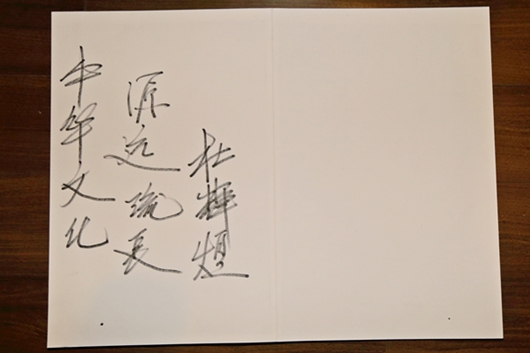 中华文化
源远流长
杜